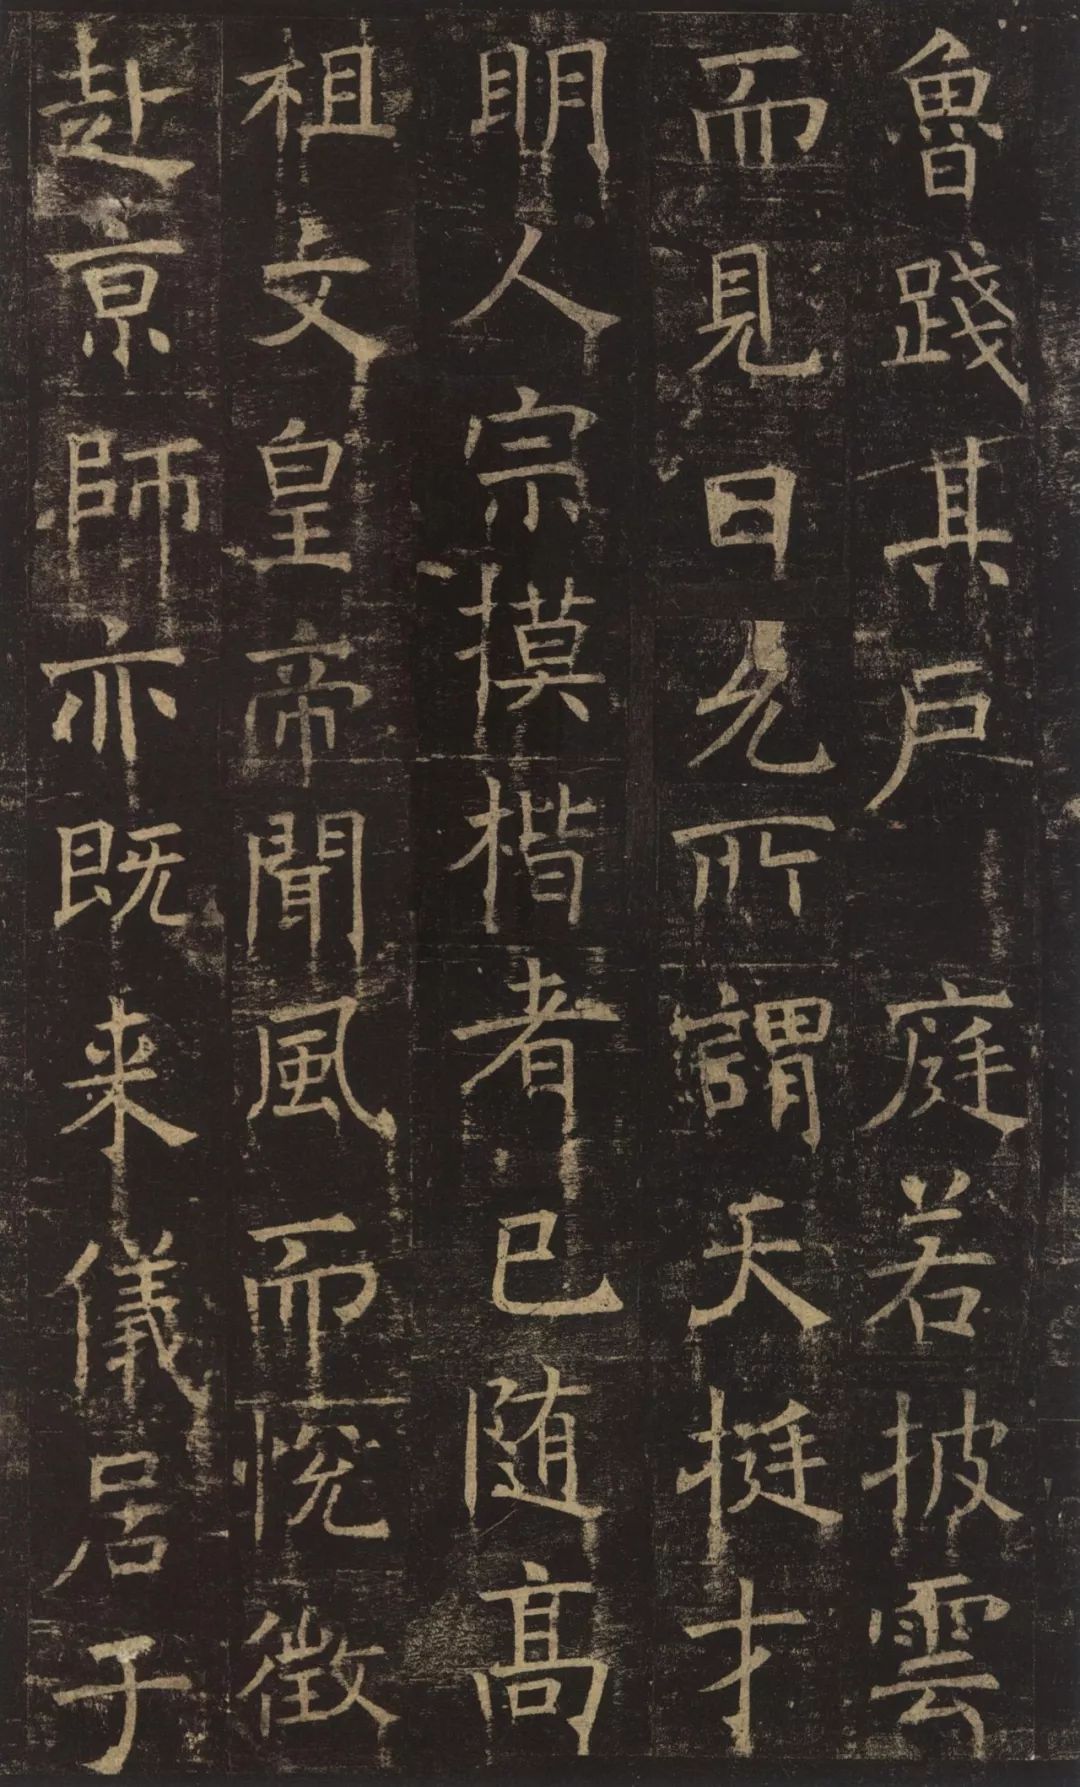 魯踐其戶庭若披雲
而見日凢所謂天挺才
明人宗摸楷者已随高
祖文皇帝聞風而悅徵
赴京師亦既来儀居于